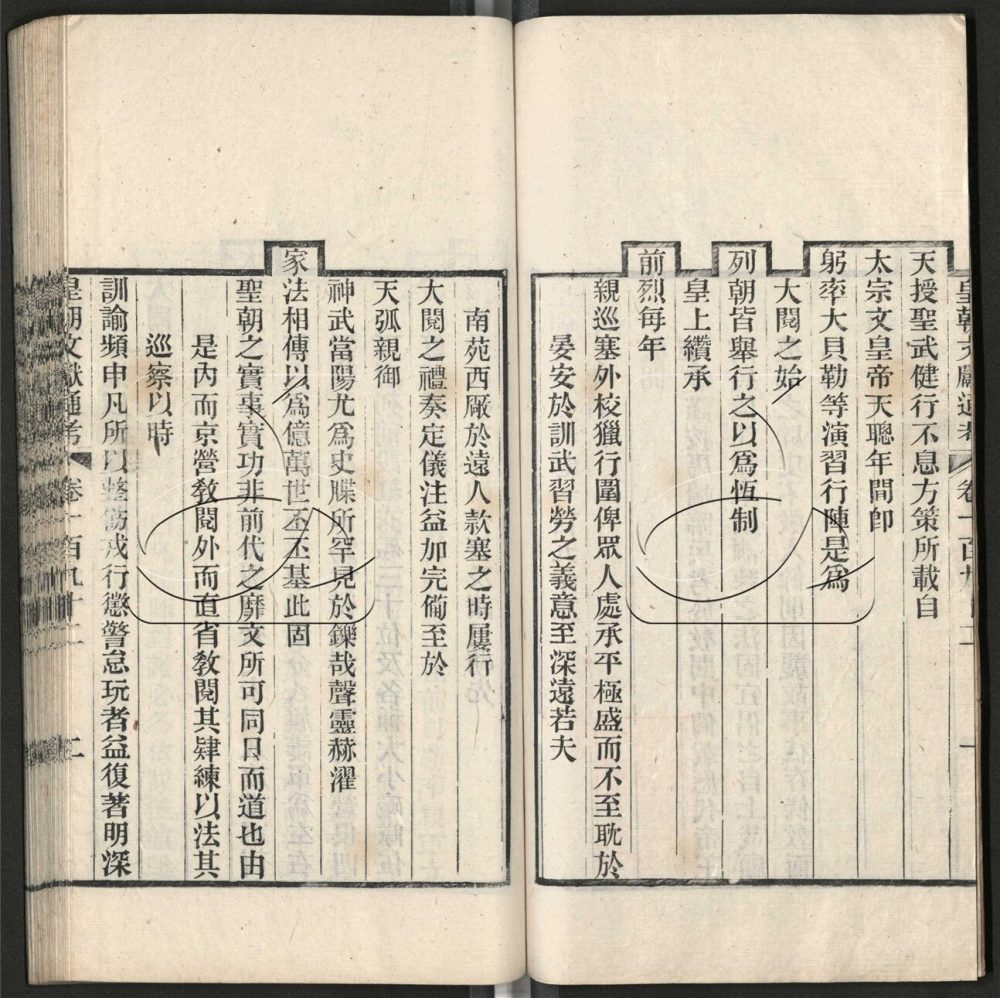 皇朝文獻通考 卷一百九十二 一
天授聖武健行不息方策所載自
太宗文皇帝天聰年間卽
躬率大貝勒等演習行陣是爲
大閱之始
列朝皆舉行之以爲恆制
皇上纘承
前烈每年
親巡塞外校獵行圍俾眾人處承平極盛而不至耽於
晏安於訓武習勞之義意至深遠若夫
南苑西厰於遠人款塞之時屢行
大閱之禮奏定儀注益加完備至於
天弧親御
神武當陽尤爲史牒所罕見於鑠哉聲靈赫濯
家法相傳以爲億萬世丕丕基此固
聖朝之實事實功非前代之靡文所可同日而道也由
是內而京營敎閱外而直省敎閱其肄練以法其
巡察以時
訓諭頻申凡所以整飭戎行懲警怠玩者益復著明深
皇朝文獻通考 卷一百九十二 二